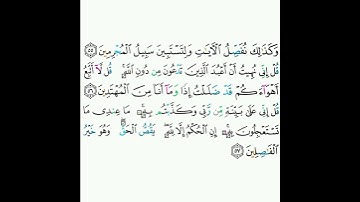 وَكَذَٰلِكَ نُفَصِّلُ الْآيَاتِ وَلِتَسْتَبِينَ سَبِيلُ الْمُجْرِمِينَ ٥٥
قُلْ إِنِّي نُهِيتُ أَنْ أَعْبُدَ الَّذِينَ تَدْعُونَ مِن دُونِ اللَّهِ ۚ قُل لَّا أَتَّبِعُ
أَهْوَاءَكُمْ ۙ قَدْ ضَلَلْتُ إِذًا وَمَا أَنَا مِنَ الْمُهْتَدِينَ ٥٦
قُلْ إِنِّي عَلَىٰ بَيِّنَةٍ مِّن رَّبِّي وَكَذَّبْتُم بِهِ ۚ مَا عِندِي مَا
تَسْتَعْجِلُونَ بِهِ ۚ إِنِ الْحُكْمُ إِلَّا لِلَّهِ ۖ يَقُصُّ الْحَقَّ ۖ وَهُوَ خَيْرُ
الْفَاصِلِينَ ٥٧